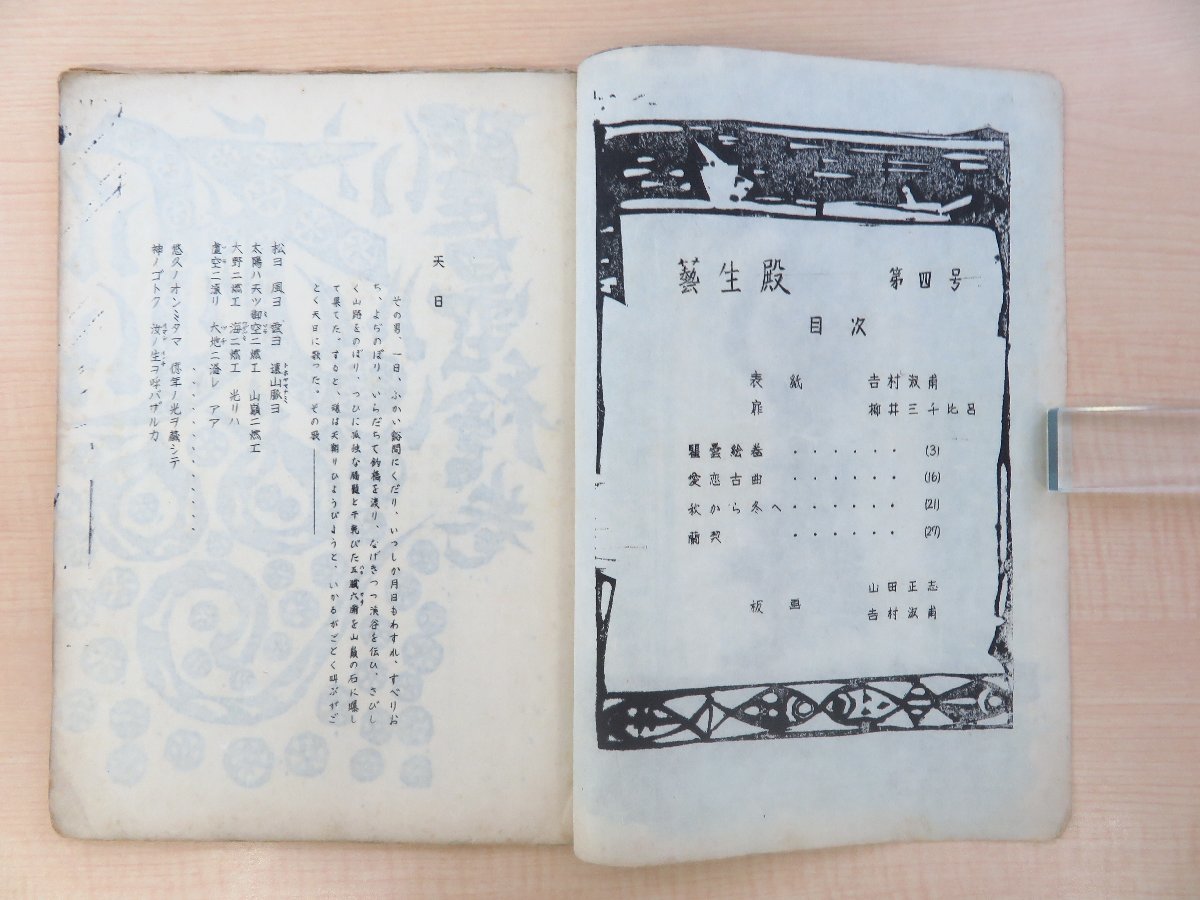 藝生殿 第四号
目次
表紙 吉村淑甫
扉 柳井三千比呂
瞿曇絵巻 ・・・・・・ (3)
愛恋古曲 ・・・・・・ (16)
秋から冬へ・・・・・・ (21)
蘭契 ・・・・・・ (27)
板画 山田正志
吉村淑甫
天日
その男、一日、ふかい谿間にくだり、いつしか月日もわすれ、すべりお
ち、よぢのぼり、いらだちて釣橋を渡り、なげきつつ渓谷を伝ひ、さびし
く山路をのぼり、つひに孤独な と干乾びた五臓六腑を山巓の石に曝し
て果てた。すると、魂は天翔りひょうびようと、いかるがごとく叫ぶがご
とく天日に歌った。その歌――
松ヨ 風ヨ 雲ヨ 遠山脈ヨ
太陽ハ天ツ御空ニ燃エ 山巓ニ燃エ
大野ニ燃エ 海ニ燃エ 光リハ
虚空ニ漲リ 大地ニ溢レ アア
・・・・・・・・・・・・
悠久ノオンミタマ 億年ノ光ヲ蔵シテ
神ノゴトク 汝ノ生コ呼バザルカ